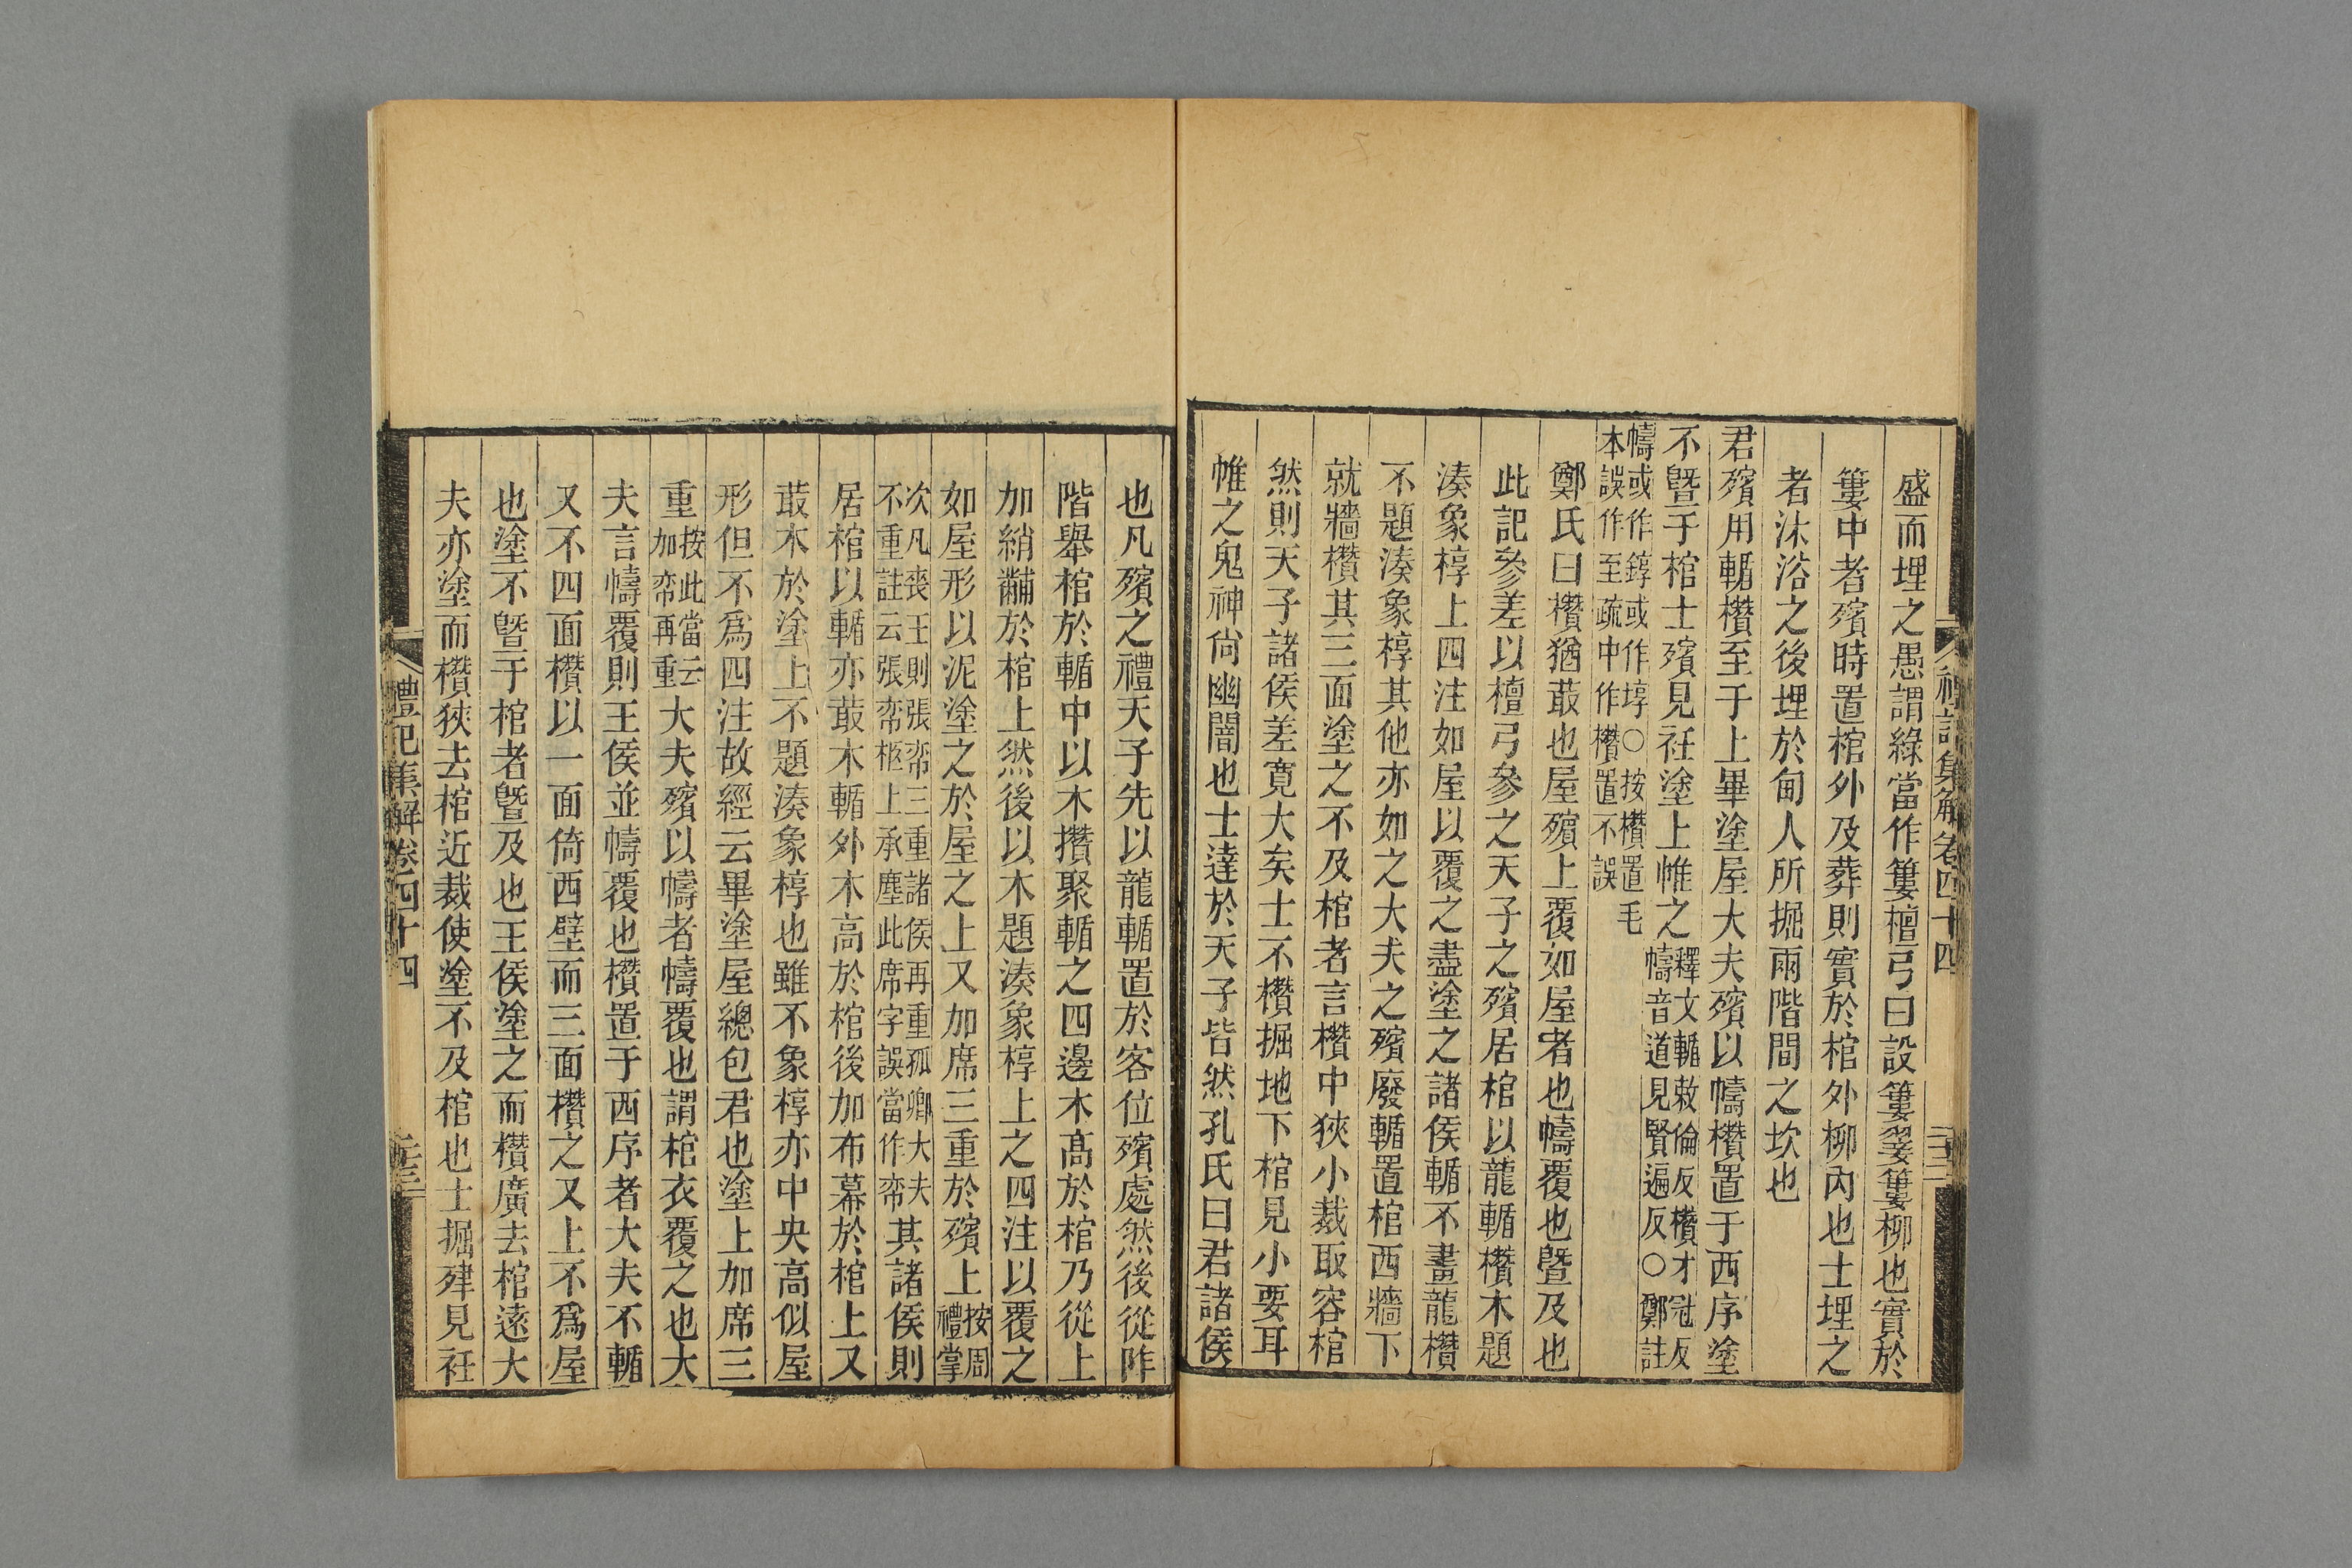 禮記集解卷四十四
盛而埋之愚謂綠當作簍檀弓曰設簍翣簍柳也實於
簍中者殯時置棺外及葬則實於棺外柳內也士埋之
者沐浴之後埋於甸人所掘兩階間之坎也
君殯用輴欑至于上畢塗屋大夫殯以幬欑置于西序塗
不曁于棺士殯見衽塗上帷之釋文輴敕倫反欑才冠反
幬音道見賢遍反○鄭註
幬或作錞或作埻○按欑置毛
本誤作至疏中作欑置不誤
鄭氏曰欑猶菆也屋殯上覆如屋者也幬覆也曁及也
此記參差以檀弓參之天子之殯居棺以龍輴欑木題
湊象椁上四注如屋以覆之盡塗之諸侯輴不畫龍欑
不題湊象椁其他亦如之大夫之殯廢輴置棺西牆下
就牆欑其三面塗之不及棺者言欑中狹小裁取容棺
然則天子諸侯差寛大矣士不欑掘地下棺見小要耳
帷之鬼神尙幽闇也士達於天子皆然孔氏曰君諸侯
也凡殯之禮天子先以龍輴置於客位殯處然後從阼
階舉棺於輴中以木攢聚輴之四邊木高於棺乃從上
加綃黼於棺上然後以木題湊象椁上之四注以覆之
如屋形以泥塗之於屋之上又加席三重於殯上按周
禮掌
次凡喪王則張帟三重諸侯再重孤卿大夫
不重註云張帟柩上承塵此席字誤當作帟其諸侯則
居棺以輴亦菆木輴外木高於棺後加布幕於棺上又
菆木於塗上不題湊象椁也雖不象椁亦中央高似屋
形但不爲四注故經云畢塗屋總包君也塗上加席三
重按此當云
加帟再重大夫殯以幬者幬覆也謂棺衣覆之也大
夫言幬覆則王侯並幬覆也欑置于西序者大夫不輴
又不四面欑以一面倚西壁而三面欑之又上不爲屋
也塗不曁于棺者曁及也王侯塗之而欑廣去棺遠大
夫亦塗而欑狹去棺近裁使塗不及棺也士掘肂見衽
禮記集解卷四十四